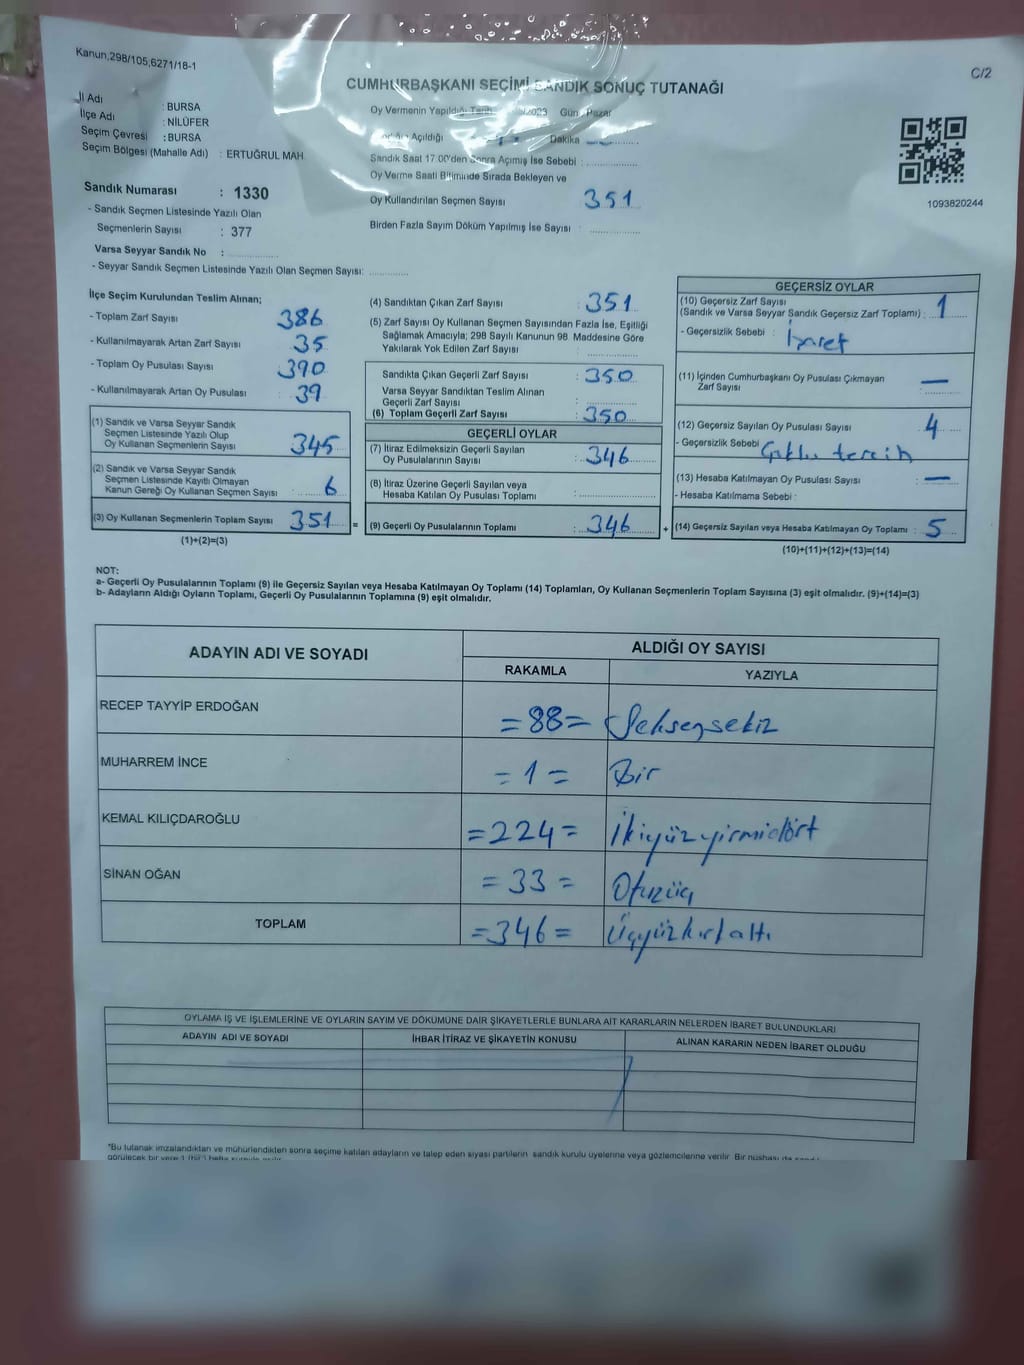 Kanun,298/105,6271/18-1
C/2
CUMHURBAŞKANI SEÇİMİ SANDIK SONUÇ TUTANAĞI
İl Adı : BURSA
İlçe Adı : NİLÜFER
Seçim Çevresi : BURSA
Seçim Bölgesi (Mahalle Adı) : ERTUĞRUL MAH.
Oy Vermenin Yapıldığı Tarih /2023 Gün : Pazar
Açıldığı Dakika
Sandık Saat 17:00'den Sonra Açılmış İse Sebebi :
Oy Verme Saati Bitiminde Sırada Bekleyen ve
Oy Kullandırılan Seçmen Sayısı 351
Birden Fazla Sayım Döküm Yapılmış İse Sayısı :
1093820244
Sandık Numarası : 1330
- Sandık Seçmen Listesinde Yazılı Olan
Seçmenlerin Sayısı : 377
Varsa Seyyar Sandık No :
- Seyyar Sandık Seçmen Listesinde Yazılı Olan Seçmen Sayısı:
İlçe Seçim Kurulundan Teslim Alınan;
- Toplam Zarf Sayısı 386
- Kullanılmayarak Artan Zarf Sayısı 35
- Toplam Oy Pusulası Sayısı 390
- Kullanılmayarak Artan Oy Pusulası 39
(1) Sandık ve Varsa Seyyar Sandık
Seçmen Listesinde Yazılı Olup
Oy Kullanan Seçmenlerin Sayısı 345
(2) Sandık ve Varsa Seyyar Sandık
Seçmen Listesinde Kayıtlı Olmayan
Kanun Gereği Oy Kullanan Seçmen Sayısı : 6
(3) Oy Kullanan Seçmenlerin Toplam Sayısı 351
(1)+(2)=(3)
=
(4) Sandıktan Çıkan Zarf Sayısı : 351
(5) Zarf Sayısı Oy Kullanan Seçmen Sayısından Fazla İse, Eşitliği
Sağlamak Amacıyla; 298 Sayılı Kanunun 98. Maddesine Göre
Yakılarak Yok Edilen Zarf Sayısı :
Sandıkta Çıkan Geçerli Zarf Sayısı : 350
Varsa Seyyar Sandıktan Teslim Alınan
Geçerli Zarf Sayısı :
(6) Toplam Geçerli Zarf Sayısı : 350
GEÇERLİ OYLAR
(7) İtiraz Edilmeksizin Geçerli Sayılan
Oy Pusulalarının Sayısı : 346
(8) İtiraz Üzerine Geçerli Sayılan veya
Hesaba Katılan Oy Pusulası Toplamı :
(9) Geçerli Oy Pusulalarının Toplamı : 346
+
GEÇERSİZ OYLAR
(10) Geçersiz Zarf Sayısı
(Sandık ve Varsa Seyyar Sandık Geçersiz Zarf Toplamı) : 1
- Geçersizlik Sebebi : İşaret
(11) İçinden Cumhurbaşkanı Oy Pusulası Çıkmayan
Zarf Sayısı : —
(12) Geçersiz Sayılan Oy Pusulası Sayısı : 4
- Geçersizlik Sebebi : Çoklu tercih
(13) Hesaba Katılmayan Oy Pusulası Sayısı : —
- Hesaba Katılmama Sebebi :
(14) Geçersiz Sayılan veya Hesaba Katılmayan Oy Toplamı : 5
(10)+(11)+(12)+(13)=(14)
NOT:
a- Geçerli Oy Pusulalarının Toplamı (9) ile Geçersiz Sayılan veya Hesaba Katılmayan Oy Toplamı (14) Toplamları, Oy Kullanan Seçmenlerin Toplam Sayısına (3) eşit olmalıdır. (9)+(14)=(3)
b- Adayların Aldığı Oyların Toplamı, Geçerli Oy Pusulalarının Toplamına (9) eşit olmalıdır.
ADAYIN ADI VE SOYADI
ALDIĞI OY SAYISI
RAKAMLA YAZIYLA
RECEP TAYYİP ERDOĞAN =88= Seksensekiz
MUHARREM İNCE =1= Bir
KEMAL KILIÇDAROĞLU =224= İkiyüzyirmidört
SİNAN OĞAN =33= Otuzüç
TOPLAM =346= Üçyüzkırkaltı
OYLAMA İŞ VE İŞLEMLERİNE VE OYLARIN SAYIM VE DÖKÜMÜNE DAİR ŞİKAYETLERLE BUNLARA AİT KARARLARIN NELERDEN İBARET BULUNDUKLARI
ADAYIN ADI VE SOYADI İHBAR İTİRAZ VE ŞİKAYETİN KONUSU ALINAN KARARIN NEDEN İBARET OLDUĞU
*Bu tutanak imzalandıktan ve mühürlendikten sonra seçime katılan adayların ve talep eden siyasi partilerin sandık kurulu üyelerine veya gözlemcilerine verilir. Bir nüshası da